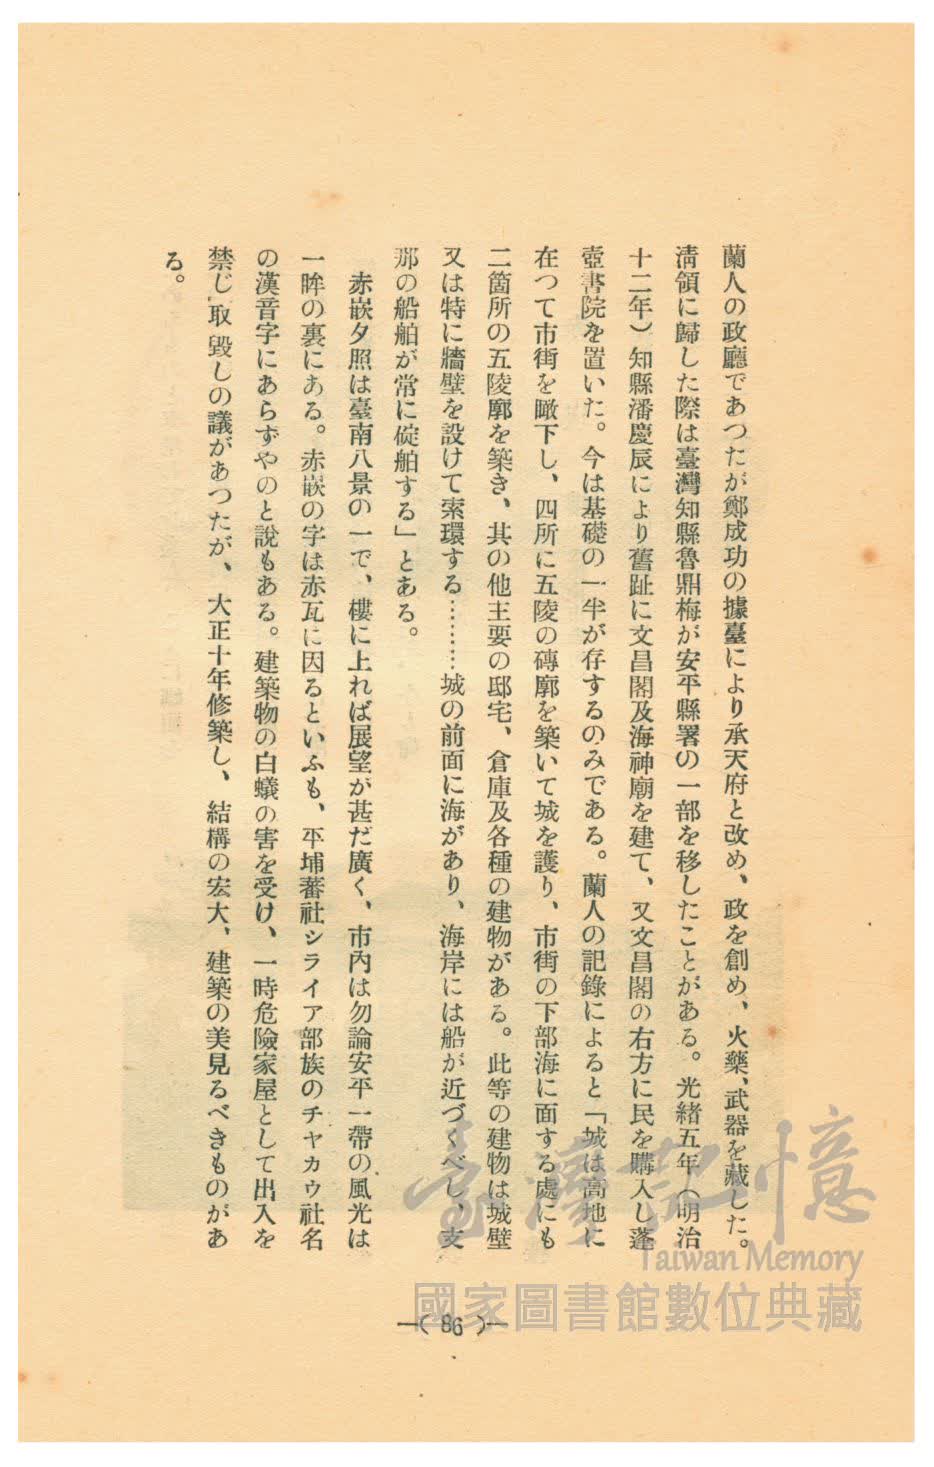 蘭人の政廳であつたが鄭成功の據臺により承天府と改め、政を創め、火藥、武器を藏した。
淸領に歸した際は臺灣知縣魯鼎梅が安平縣署の一部を移したことがある。光緖五年（明治
十二年）知縣潘慶辰により舊趾に文昌閣及海神廟を建て、又文昌閣の右方に民を購入し蓬
壺書院を置いた。今は基礎の一半が存するのみである。蘭人の記錄によると「城は高地に
在つて市街を瞰下し、四所に五陵の磚廓を築いて城を護り、市街の下部海に面する處にも
二箇所の五陵廓を築き、其の他主要の邸宅、倉庫及各種の建物がある。此等の建物は城壁
又は特に牆壁を設けて索環する………城の前面に海があり、海岸には船が近づくべし、支
那の船舶が常に碇舶する」とある。
赤嵌夕照は臺南八景の一で、樓に上れば展望が甚だ廣く、市內は勿論安平一帶の風光は
一眸の裏にある。赤嵌の字は赤瓦に因るといふも、平埔蕃社シライア部族のチヤカウ社名
の漢音字にあらずやのと說もある。建築物の白蟻の害を受け、一時危險家屋として出入を
禁じ取毀しの議があつたが、大正十年修築し、結構の宏大、建築の美見るべきものがあ
る。
—( 86 )—
臺灣記憶
Taiwan Memory
國家圖書館數位典藏